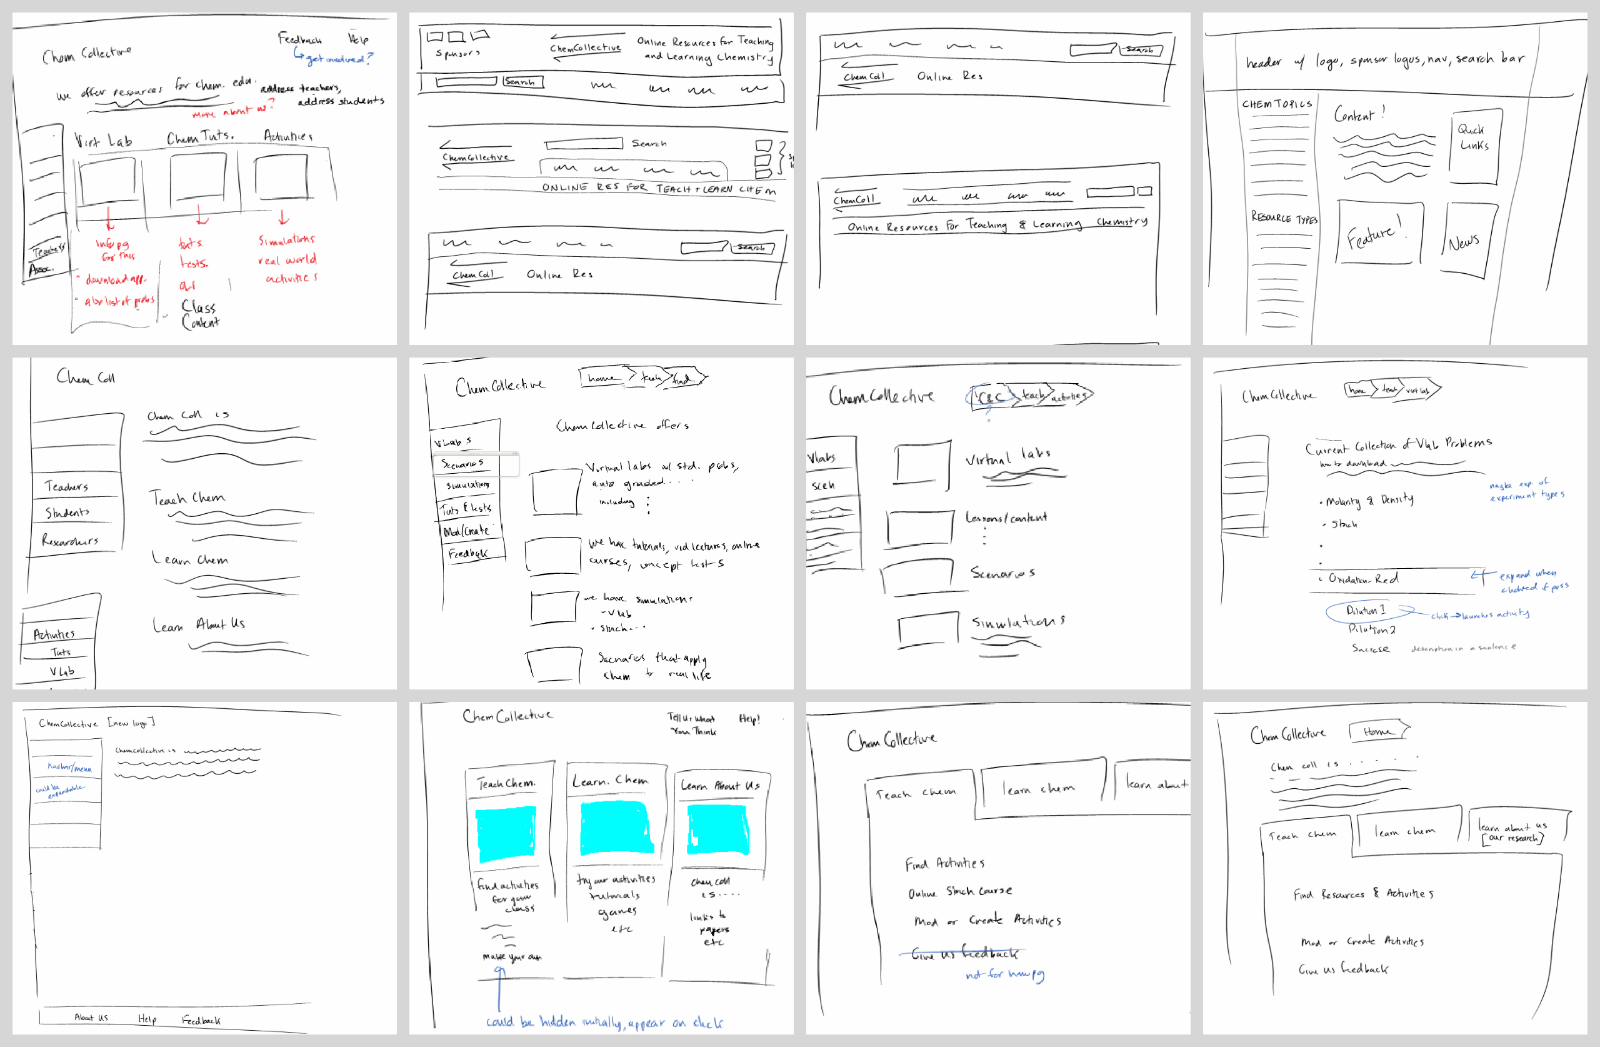 Chem Collective
Feedback Help
get involved?
we offer resources for chem. edu.
address teachers,
address students
more about us?
Virt Lab Chem Tuts. Activities
info pg
for this
• download app.
• also list of probs
tuts
tests.
Class
Content
Simulations
real world
activities
Teachers
Assoc.
Sponsors
ChemCollective
Online Resources for Teaching
and Learning Chemistry
Search
Search
ChemCollective
ONLINE RES FOR TEACH + LEARN CHEM
Search
ChemColl Online Res
Search
ChemColl Online Res
ChemColl
Online Resources For Teaching & Learning Chemistry
header w/ logo, sponsor logos, nav, search bar
CHEM TOPICS
Content!
Quick
Links
RESOURCE TYPES
Feature!
News
Chem Coll
Chem Coll is
Teachers
Students
Researchers
Teach Chem
Learn Chem
Learn About Us
Activities
Tuts
V Lab
ChemCollective
home teach find
ChemCollective offers
VLabs
Scenarios
Simulations
Tuts & tests
Mod/Create
Feedback
Virtual labs w/ std. probs,
auto graded....
including
We have tutorials, vid lectures, online
courses, concept tests
we have simulations
- Vlab
• Stoich...
Scenarios that apply
chem to real life
ChemCollective
teach activities
Vlabs
Scen
Virtual labs
Lessons/content
Scenarios
Simulations
ChemCollective
home teach virt lab
Current Collection of Vlab Problems
how to download
maybe exp. of
experiment types
• Molarity & Density
• Stoich
• Oxidation-Red
expand when
clicked if poss
Dilution 1
click → launches activity
Dilution 2
Sucrose
description in a sentence
ChemCollective [new logo]
ChemCollective is
navbar/menu
could be
expandable
About Us Help Feedback
Chem Collective
Tell us what
You Think
Help!
Teach Chem. Learn. Chem Learn About Us
find activities
for your
class
make your own
try our activities
tutorials
games
etc
Chem coll
is....
links to
papers
etc
could be hidden initially, appear on click
Chem Collective
Teach chem learn chem learn about
Find Activities
Online Stoich Course
Mod or Create Activities
Give us feedback
not for hmpg
Chem Collective Home
Chem coll is ......
Teach chem learn chem
learn about us
[our research]
Find Resources & Activities
Mod or Create Activities
Give us feedback